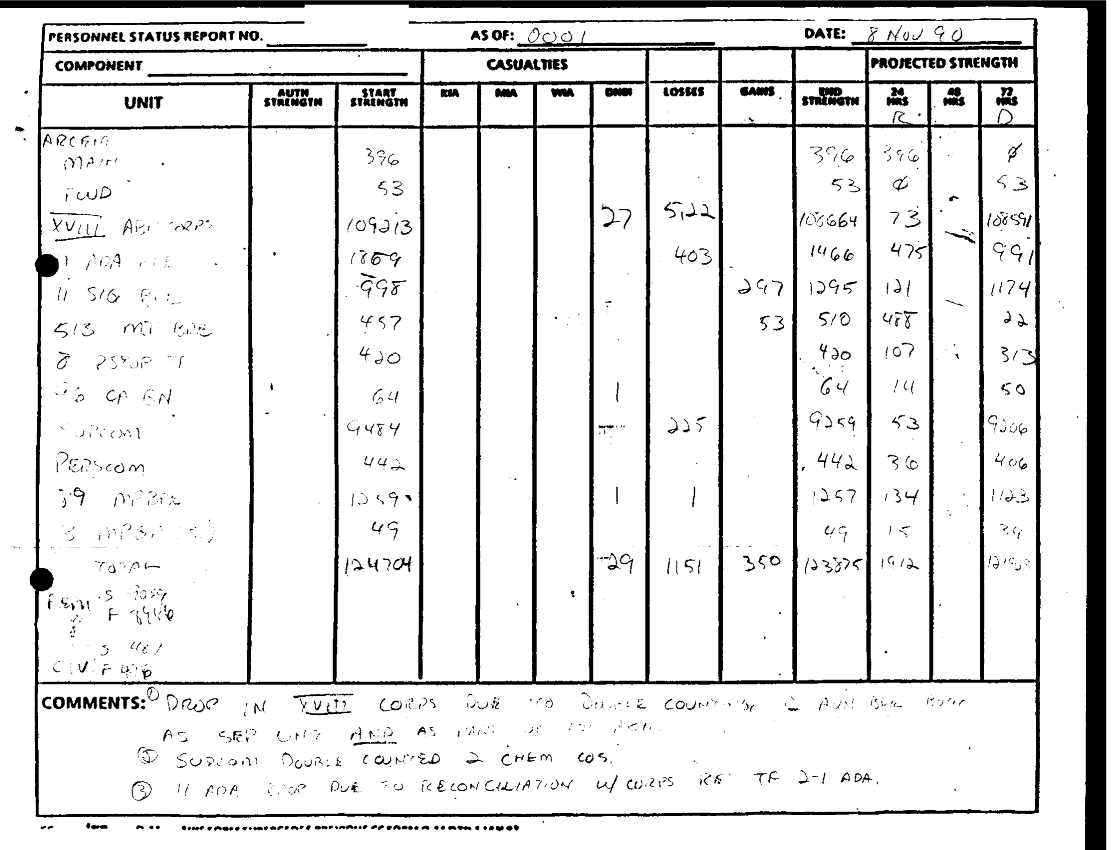 PERSONNEL STATUS REPORT NO. AS OF: 0001 DATE: 8 NOV 90
COMPONENT CASUALTIES PROJECTED STRENGTH
UNIT AUTH STRENGTH START STRENGTH KIA MIA WIA DNBI LOSSES GAINS END STRENGTH 24 HRS 48 HRS 72 HRS
R D
ARCENT
MAIN 396 396 396 ∅
FWD 53 53 ∅ 53
XVIII ABN CORPS 109213 27 522 108664 73 108591
11 ADA BDE 1869 403 1466 475 991
11 SIG BDE 998 297 1295 121 1174
513 MI BDE 457 53 510 488 22
8 PSYOP TF 420 420 107 313
96 CA BN 64 1 64 14 50
SUPCOM 9484 225 9259 53 9206
PERSCOM 442 442 36 406
89 MPBDE 1259 1 1 1257 134 1123
3 49 49 15 34
TOTAL 124704 29 1151 350 123875 1912
FEM S
F
S 481
CIV F
COMMENTS: ① DROP IN XVIII CORPS DUE TO DOUBLE COUNTING 2 AVN BDE BOTH
AS SEP UNIT AND AS PART OF
② SUPCOM DOUBLE COUNTED 2 CHEM COS.
③ 11 ADA DROP DUE TO RECONCILIATION W/ CORPS RE: TF 2-1 ADA.